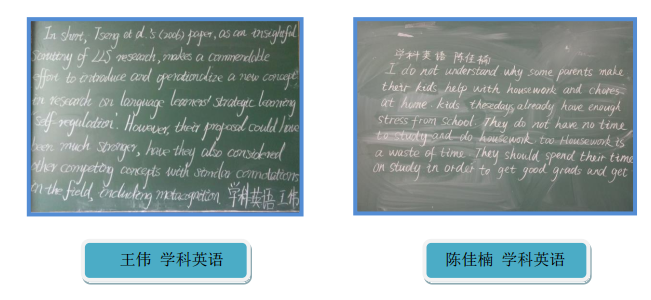 In short, Tseng et al.'s (2006) paper, as an insightful
scrutiny of LLS research, makes a commendable
effort to introduce and operationalize a new concept
in research on language learners' strategic learning
'self-regulation'. However, their proposal could have
been much stronger, have they also considered
other competing concepts with similar connotations
in the field, including metacognition 学科英语 王伟
学科英语 陈佳楠
I do not understand why some parents make
their kids help with housework and chores
at home. kids thesedays already have enough
stress from school. They do not have no time
to study and do housework. too Housework is
a waste of time. They should spend their time
on study in order to get good grads and get
王伟 学科英语
陈佳楠 学科英语